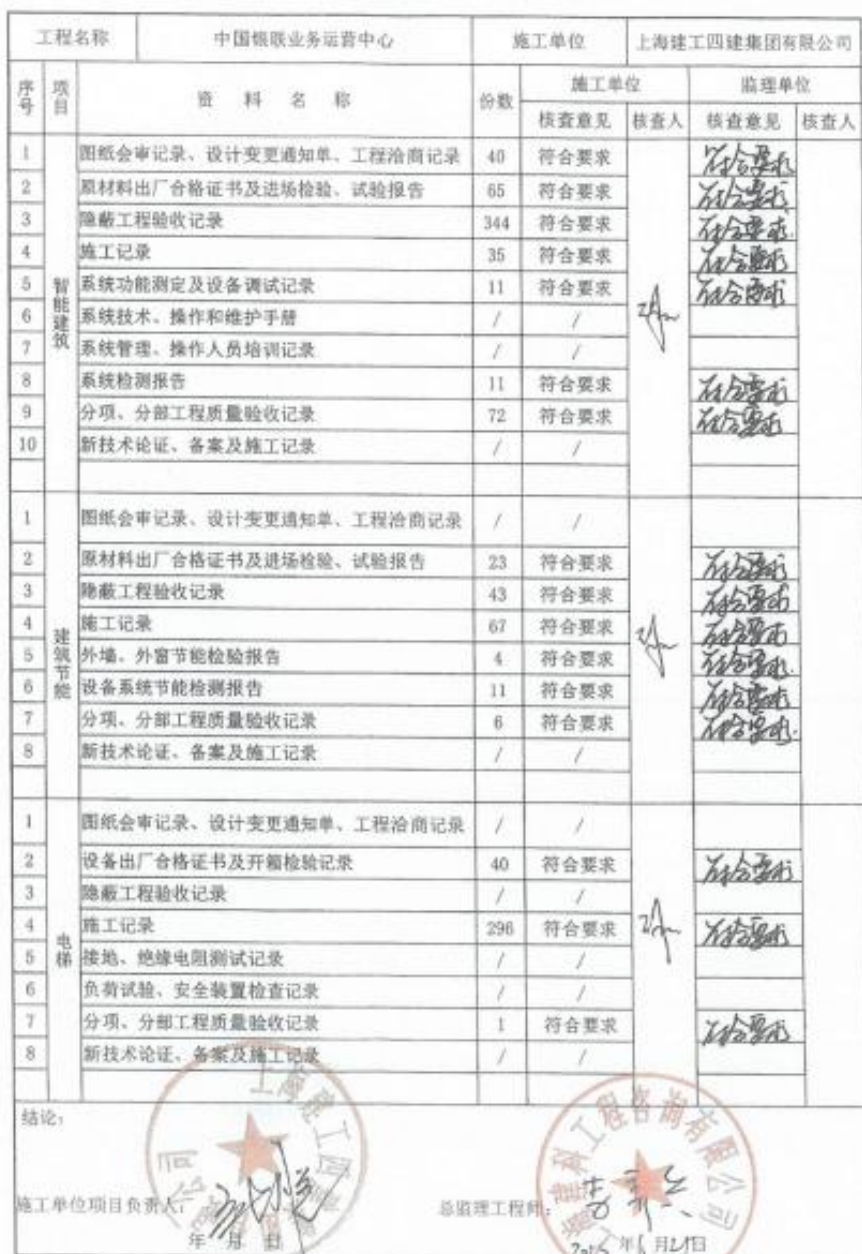 工程名称 中国银联业务运营中心 施工单位 上海建工四建集团有限公司
序号 项目 资 料 名 称 份数 施工单位 监理单位
核查意见 核查人 核查意见 核查人
智能建筑
1 图纸会审记录、设计变更通知单、工程洽商记录 40 符合要求 符合要求
2 原材料出厂合格证书及进场检验、试验报告 65 符合要求 符合要求
3 隐蔽工程验收记录 344 符合要求 符合要求
4 施工记录 35 符合要求 符合要求
5 系统功能测定及设备调试记录 11 符合要求 符合要求
6 系统技术、操作和维护手册 / /
7 系统管理、操作人员培训记录 / /
8 系统检测报告 11 符合要求 符合要求
9 分项、分部工程质量验收记录 72 符合要求 符合要求
10 新技术论证、备案及施工记录 / /
建筑节能
1 图纸会审记录、设计变更通知单、工程洽商记录 / /
2 原材料出厂合格证书及进场检验、试验报告 23 符合要求 符合要求
3 隐蔽工程验收记录 43 符合要求 符合要求
4 施工记录 67 符合要求 符合要求
5 外墙、外窗节能检验报告 4 符合要求 符合要求
6 设备系统节能检测报告 11 符合要求 符合要求
7 分项、分部工程质量验收记录 6 符合要求 符合要求
8 新技术论证、备案及施工记录 / /
电梯
1 图纸会审记录、设计变更通知单、工程洽商记录 / /
2 设备出厂合格证书及开箱检验记录 40 符合要求 符合要求
3 隐蔽工程验收记录 / /
4 施工记录 296 符合要求 符合要求
5 接地、绝缘电阻测试记录 / /
6 负荷试验、安全装置检查记录 / /
7 分项、分部工程质量验收记录 1 符合要求 符合要求
8 新技术论证、备案及施工记录 / /
结论:
施工单位项目负责人: 总监理工程师:
年 月 日 年 月 日